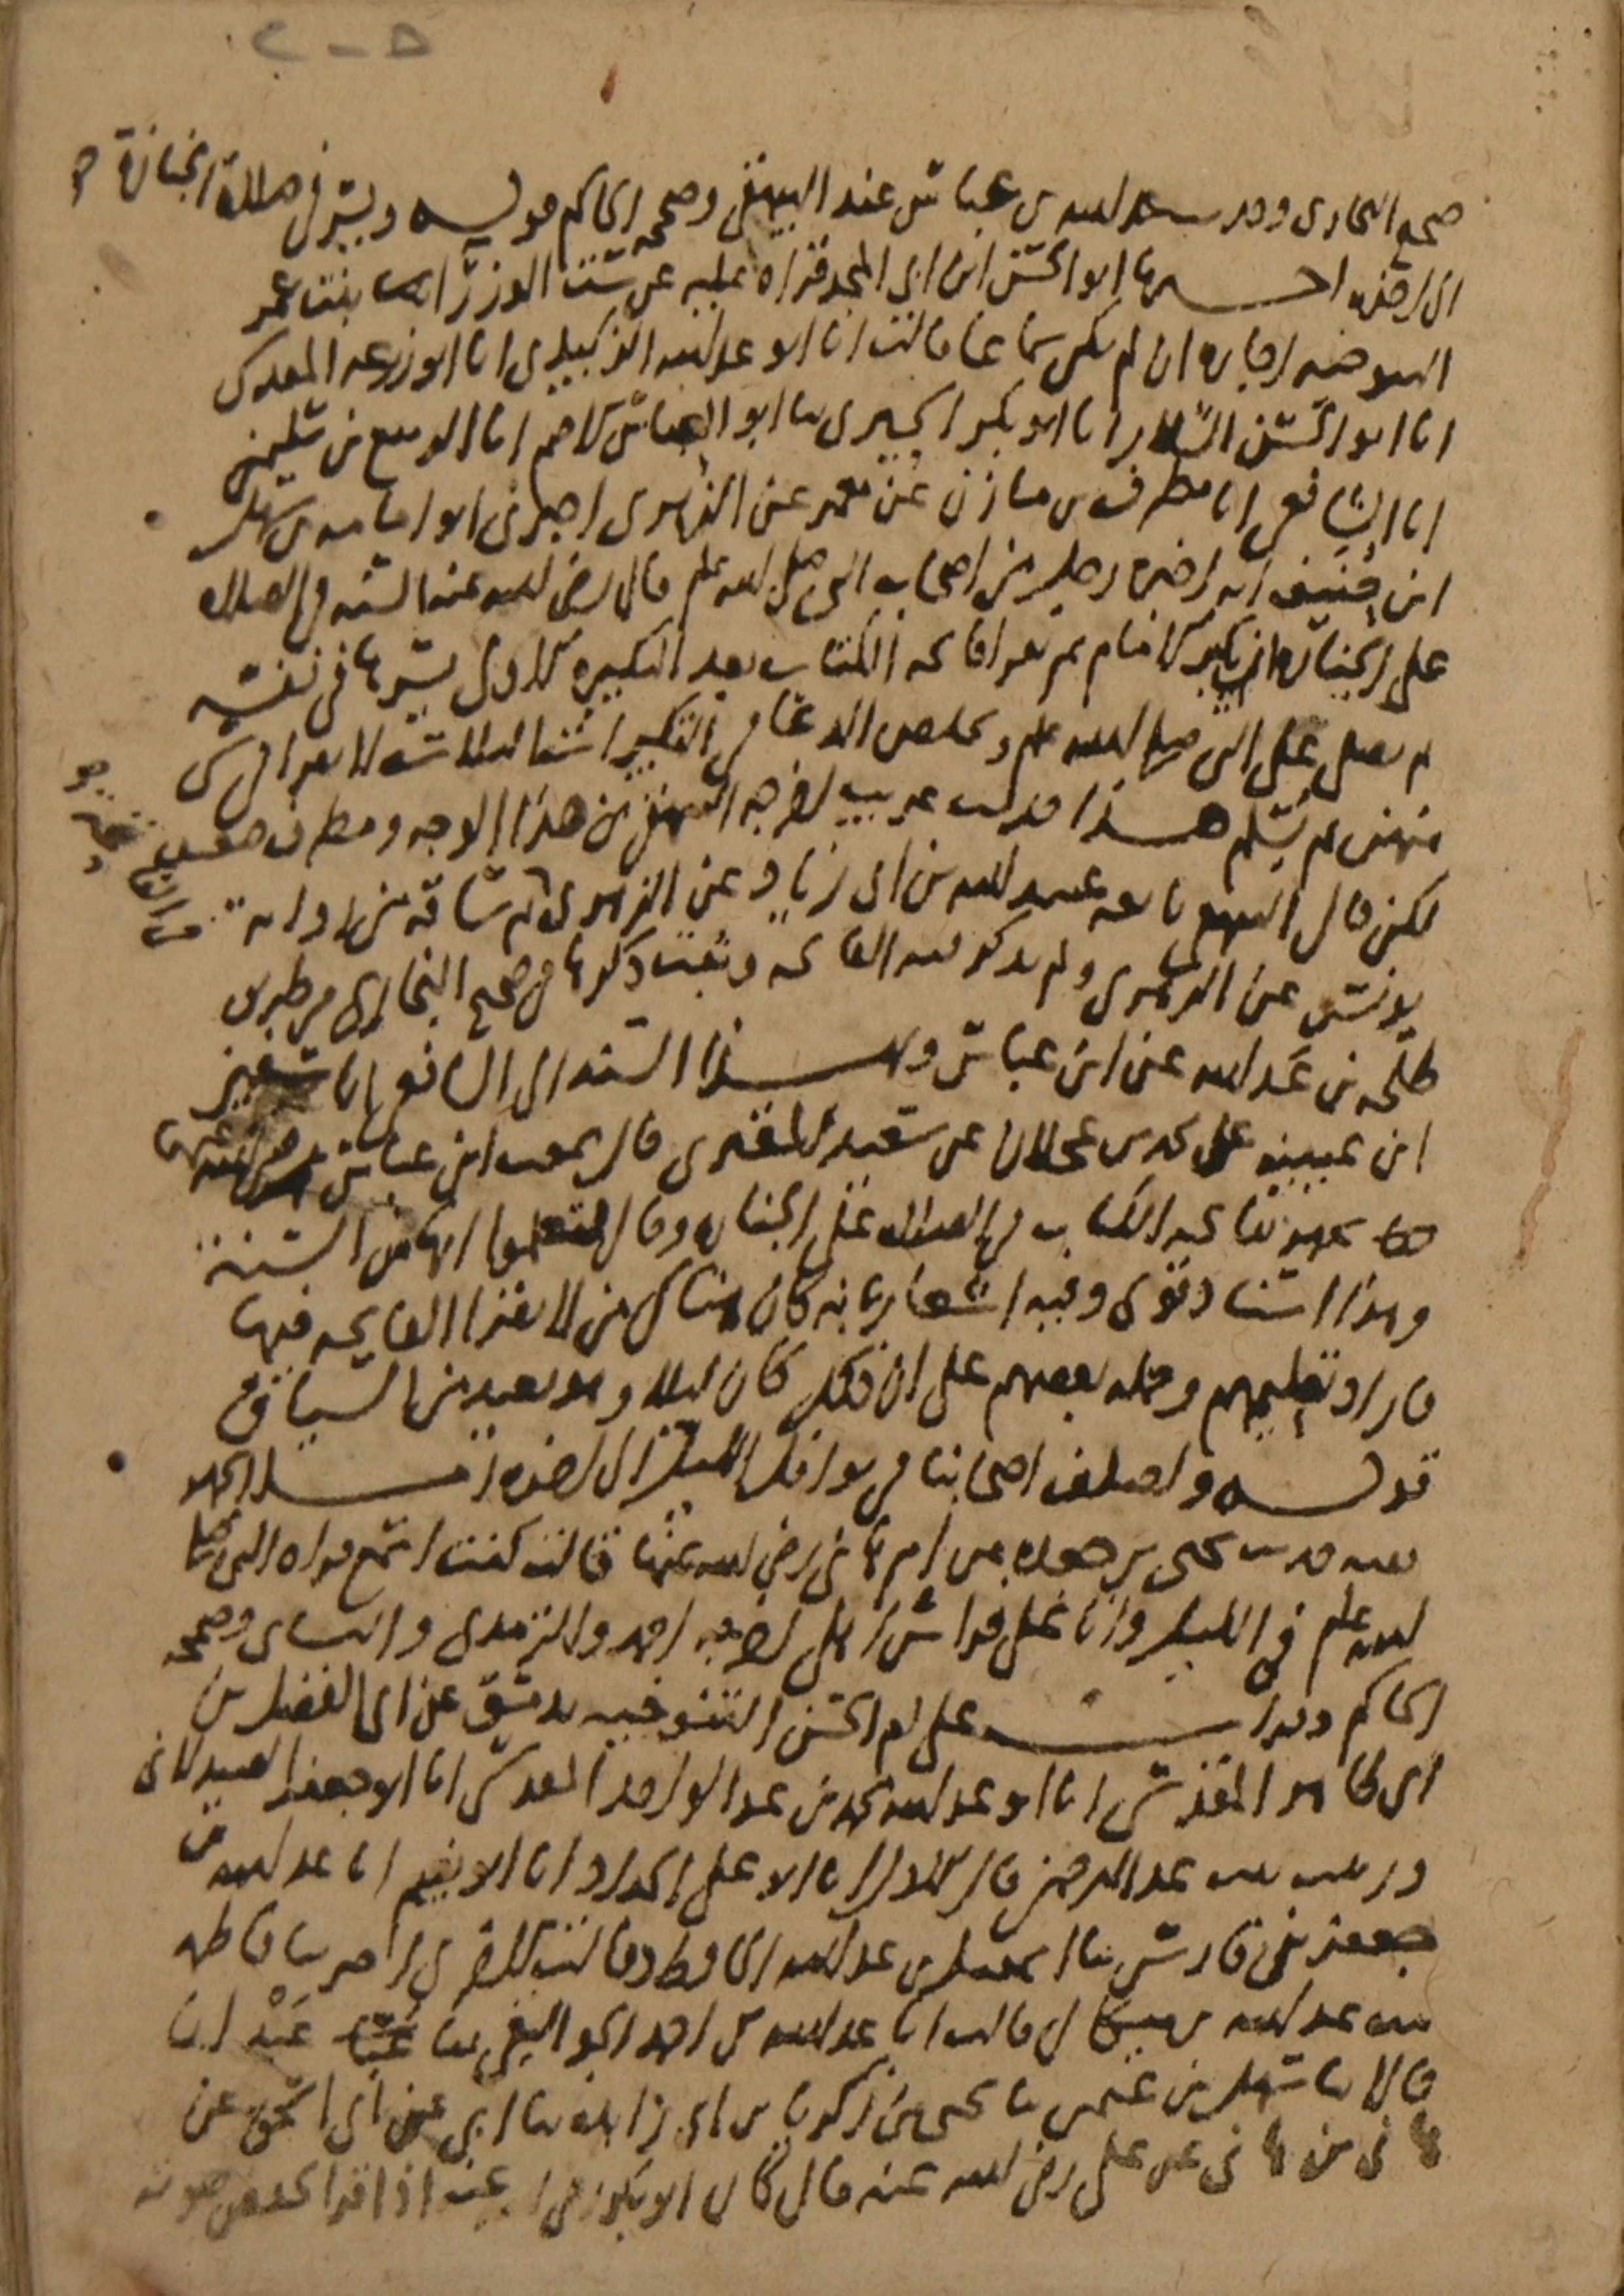 صحيح البخاري وحديث عبد الله بن عباس عند البيهقي وصححه الحاكم قوله ويسر في صلاة الجنازة
الى اخره اخبرنا ابو الحسن ابن ابي المجد قراه عليه عن ست الوزرا بنت عمر
اجازه ان لم يكن سماعا قالت انا ابو عبد الله الزبيدي انا ابو زرعه المقدسي
انا ابو الحسن السلار انا ابو بكر الحيري ثنا ابو العباس الاصم انا الربيع بن سليمن
انا الشافعي انا مطرف بن مازن عن معمر عن الزهري اخبرني ابو امامه بن سهل
ابن حنيف انه اخبره رجل من اصحاب النبي صلى الله علم قال رضي الله عنه السنه في الصلاه
على الجنازه ان يكبر الامام ثم يقرا فاتحه الكتاب بعد التكبيره الاولى يسرها في نفسه
ثم يصلي على النبي صلى الله علم ويخلص الدعا في التكبيرات الثلاث لا يقرا في شي
منهن ثم يسلم هذا حديث غريب اخرجه البيهقي من هذا الوجه ومطرف ضعيف
لكن قال البيهقي تابعه عبيد الله بن ابي زياد عن الزهري ثم ساقه من رواية
يونس عن الزهري ولم يذكر فيه الفاتحه وثبت ذكرها في صحيح البخاري من طريق
طلحه بن عبد الله عن ابن عباس وبهذا السند الى الشافعي انا سفين
ابن عيينه عن محمد بن عجلان عن سعيد المقبري قال سمعت ابن عباس رضي الله عنهما
يجهر بفاتحه الكتاب في الصلاه على الجنازه وقال لتعلموا انها من السنة
وهذا اسناد قوي وفيه اشعار بانه كان هناك من لا يقرا الفاتحه فيها
فاراد تعليمهم وحمله بعضهم على ان ذلك كان ليلا وهو بعيد من السياق
قوله واختلف اصحابنا في نوافل الليل الى اخره الجهر
فيه حديث يحيى بن جعده عن ام هاني رضي الله عنها قالت كنت اسمع قراه النبي صلى
الله علم في الليل وانا على فراش اهلي اخرجه احمد والترمذي والنساي وصححه
الحاكم وقرات على ام الحسن التنوخيه بدمشق عن ابي الفضل بن
ابي طاهر المقدسي انا ابو عبد الله محمد بن عبد الواحد المقدسي انا ابو جعفر الصيدلاني
وزينب بنت عبد الرحمن قال الاول انا ابو علي الحداد انا ابو نعيم انا عبد الله بن
جعفر بن فارس ثنا اسمعيل بن عبد الله الحافظ وقالت الاخرى اخبرتنا فاطمه
بنت عبد الله قالت انا عبد الله بن احمد الجواليقي ثنا عبدان
قالا ثنا سهل بن عثمن ثنا يحيى بن زكريا بن ابي زايده ثنا ابي عن ابي اسحق عن
هاني بن هاني عن علي رضي الله عنه قال كان ابو بكر رضي الله عنه اذا قرا خفض صوته